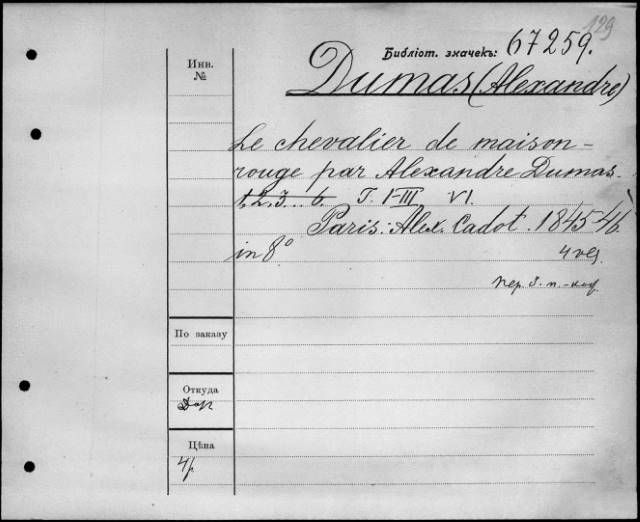 129
Библіот. значекъ: 67259.
Инв.
№
Dumas (Alexandre)
Le chevalier de maison-
rouge par Alexandre Dumas.
t. 1, 2, 3... 6. T. I-III VI.
Paris: Alex. Cadot. 1845-46.
in 8°
4 vol
пер. б. п.-
По заказу
Откуда
Дар
Цѣна
4 р